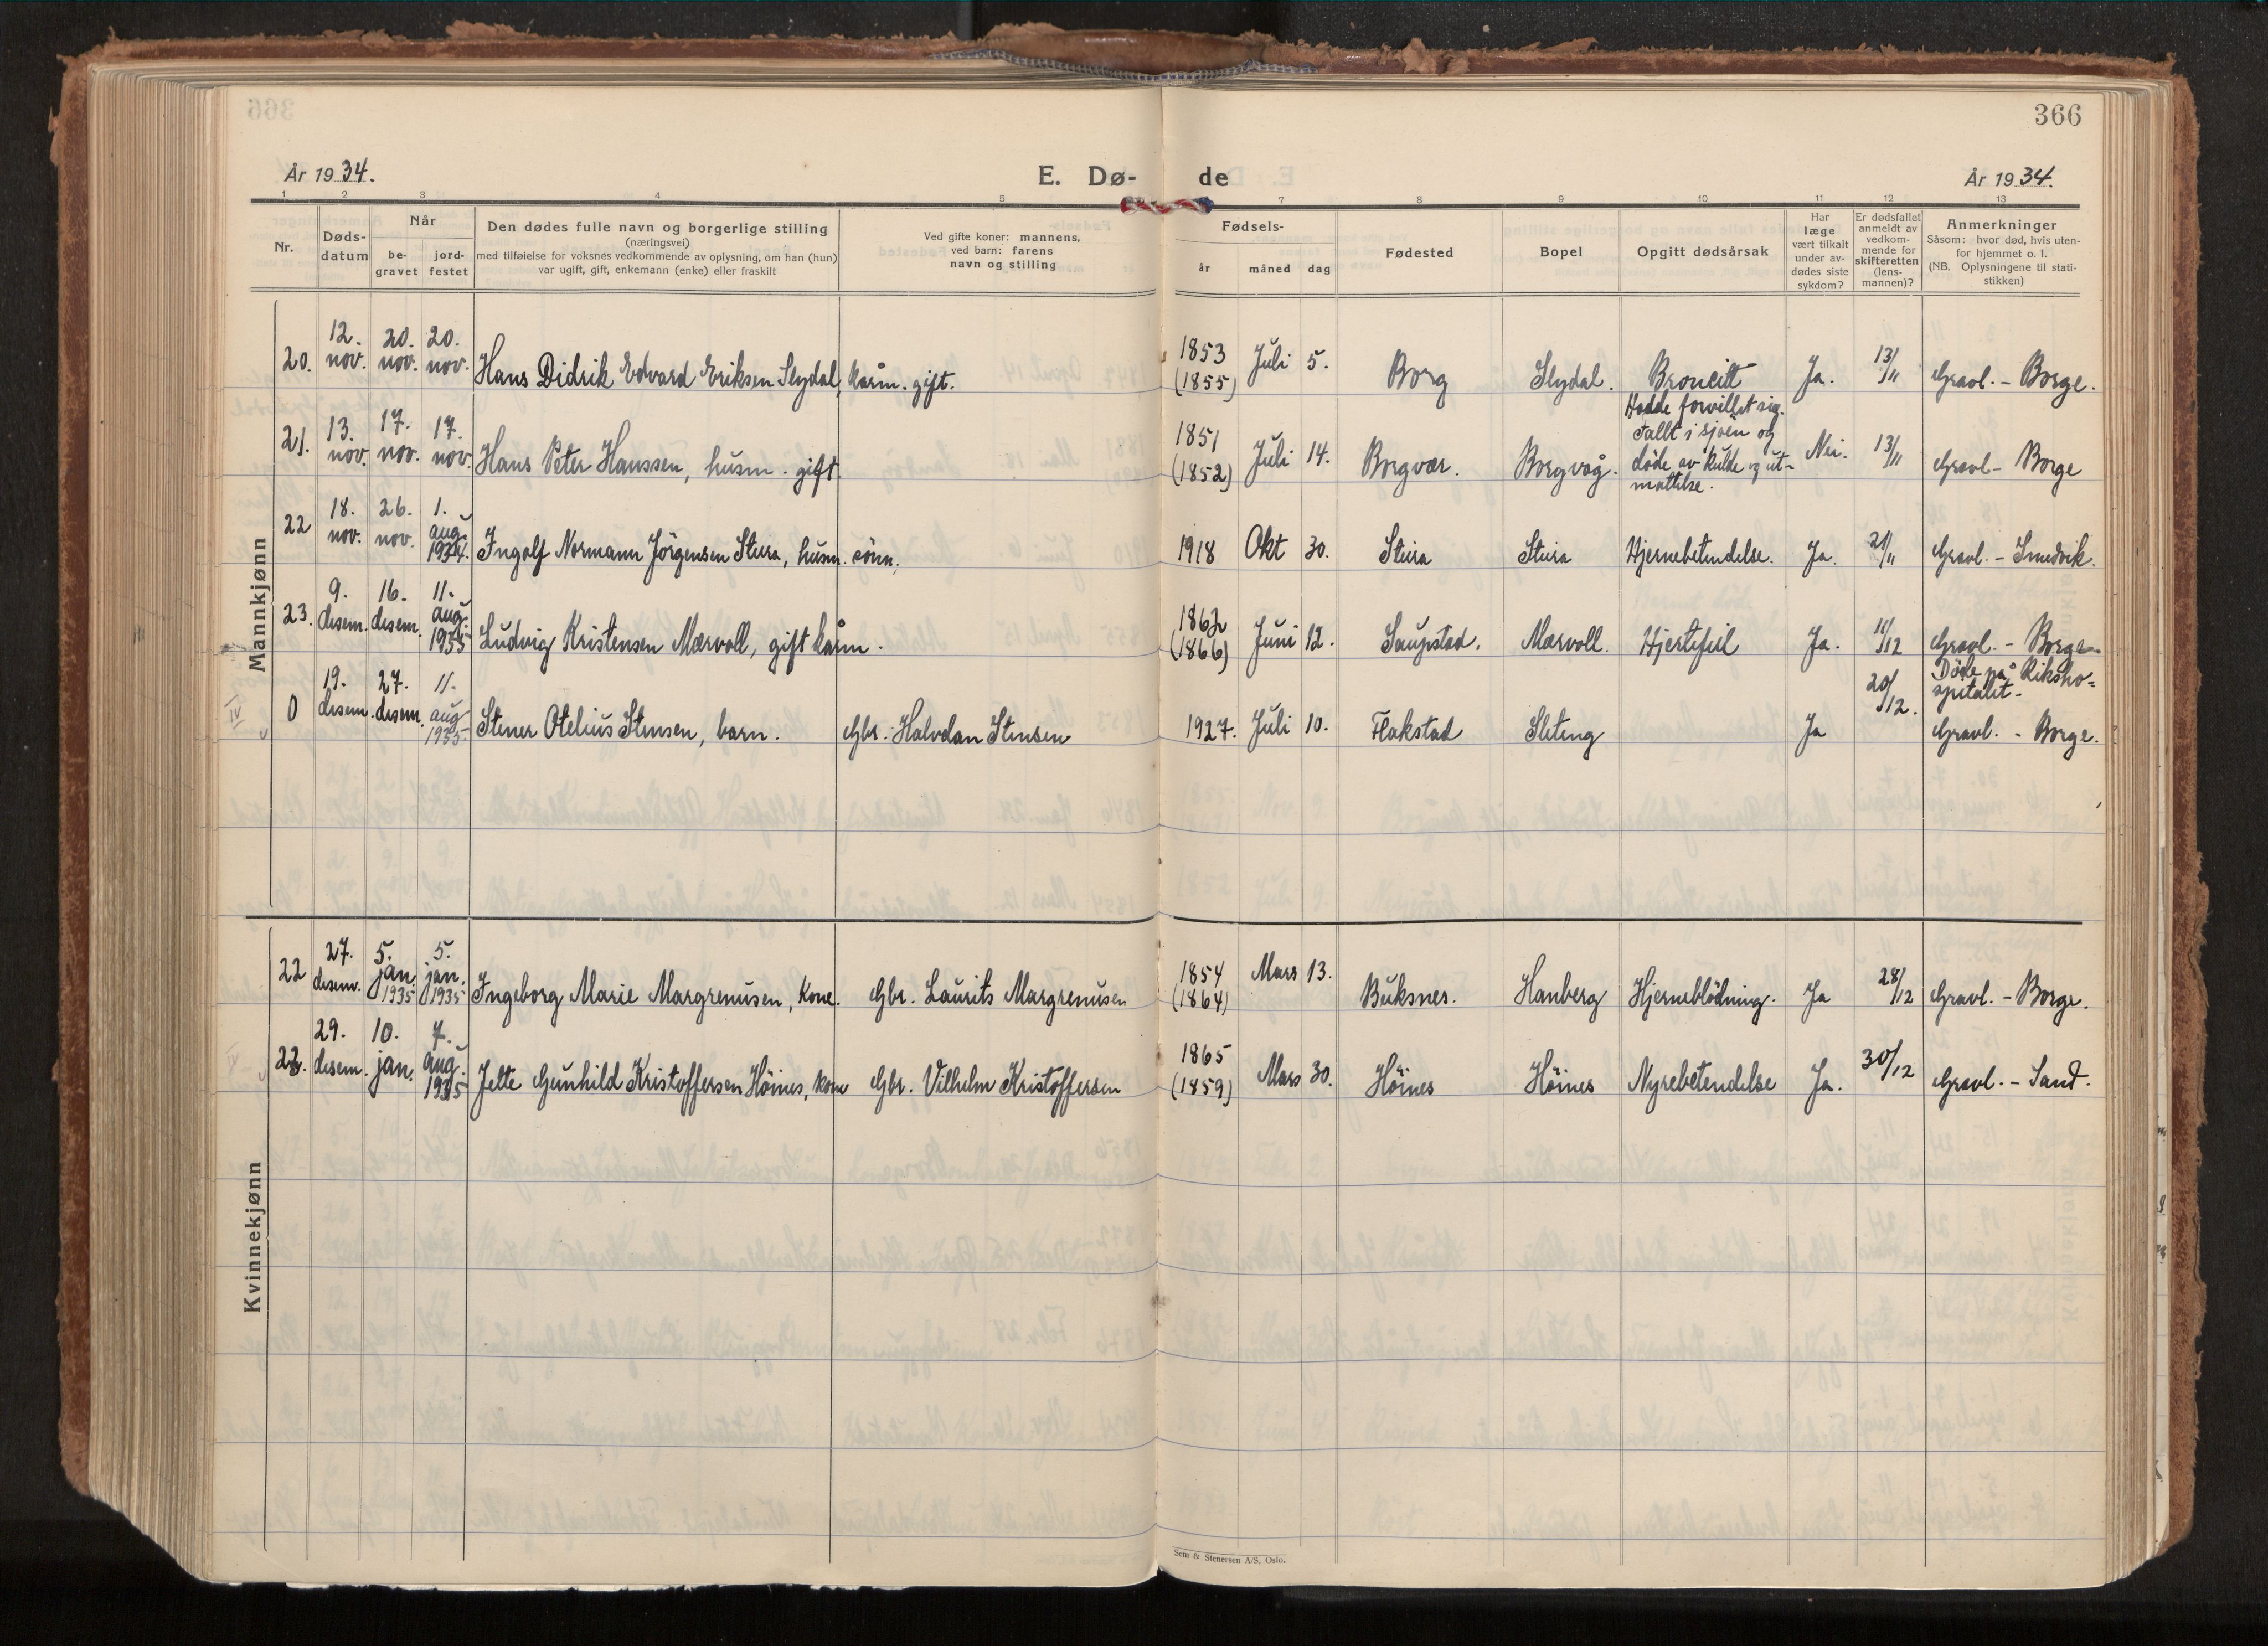 366
År 1934.
E. Dø-
de
År 1934.
1 2 3 4 5 7 8 9 10 11 12 13
Nr.
Døds-
datum
Når
be-
gravet
jord-
festet
Den dødes fulle navn og borgerlige stilling
(næringsvei)
med tilføielse for voksnes vedkommende av oplysning, om han (hun)
var ugift, gift, enkemann (enke) eller fraskilt
Ved gifte koner: mannens,
ved barn: farens
navn og stilling
Fødsels-
år
måned
dag
Fødested
Bopel
Opgitt dødsårsak
Har
læge
vært tilkalt
under av-
dødes siste
sykdom?
Er dødsfallet
anmeldt av
vedkom-
mende for
skifteretten
(lens-
mannen)?
Anmerkninger
Såsom: hvor død, hvis uten-
for hjemmet o. l.
(NB. Oplysningene til stati-
stikken)
Mannkjønn
20. 12. nov. 20. nov. 20. nov. Hans Didrik Edvard Eriksen Slydal, kårm. gift. 1853 (1855) Juli 5. Borg Slydal. Broncitt Ja. 13/11 Gravl. - Borge.
21. 13. nov. 17. nov. 17. nov. Hans Peter Hanssen, husm. gift. 1851 (1852) Juli 14. Borgvær. Borgvåg. Hadde forvillet sig.
fallt i sjøen og
døde av kulde og ut-
mattelse. Nei. 13/11 Gravl - Borge
22 18. nov. 26. nov. 1. aug. 1934. Ingolf Normann Jörgensen Steira, husm. sönn. 1918 Okt 30. Steira Steira Hjernebetendelse. Ja. 21/11 Gravl. - Smedvik.
23. 9. desem. 16. desem. 11. aug. 1935 Ludvig Kristensen Mærvoll, gift kårm. 1862 (1866) Juni 12. Saupstad. Mærvoll. Hjertefeil Ja. 11/12 Gravl. - Borge.
0 19. desem. 27. desem. 11. aug 1935. Stener Otelius Stensen, barn. Gbr. Halvdan Stensen 1927. Juli 10. Flakstad Sleteng Ja 20/12. Døde på Riksho-
spitalet -
Gravl. - Borge.
Kvinnekjønn
22 27. desem. 5. jan. 1935 5. jan. 1935 Ingeborg Marie Margrenusen, kone. Gbr. Laurits Margrenusen 1854 (1864) Mars 13. Buksnes. Hanberg Hjerneblödning. Ja 28/12 Gravl. - Borge.
29. desem. 10. jan. 7. aug. 1935 Jette Gunhild Kristoffersen Höines, kone Gbr. Vilhelm Kristoffersen 1865 (1859) Mars 30. Höines Höines Nyrebetendelse Ja. 30/12 Gravl. - Sand.
Sem & Stenersen A/S, Oslo.